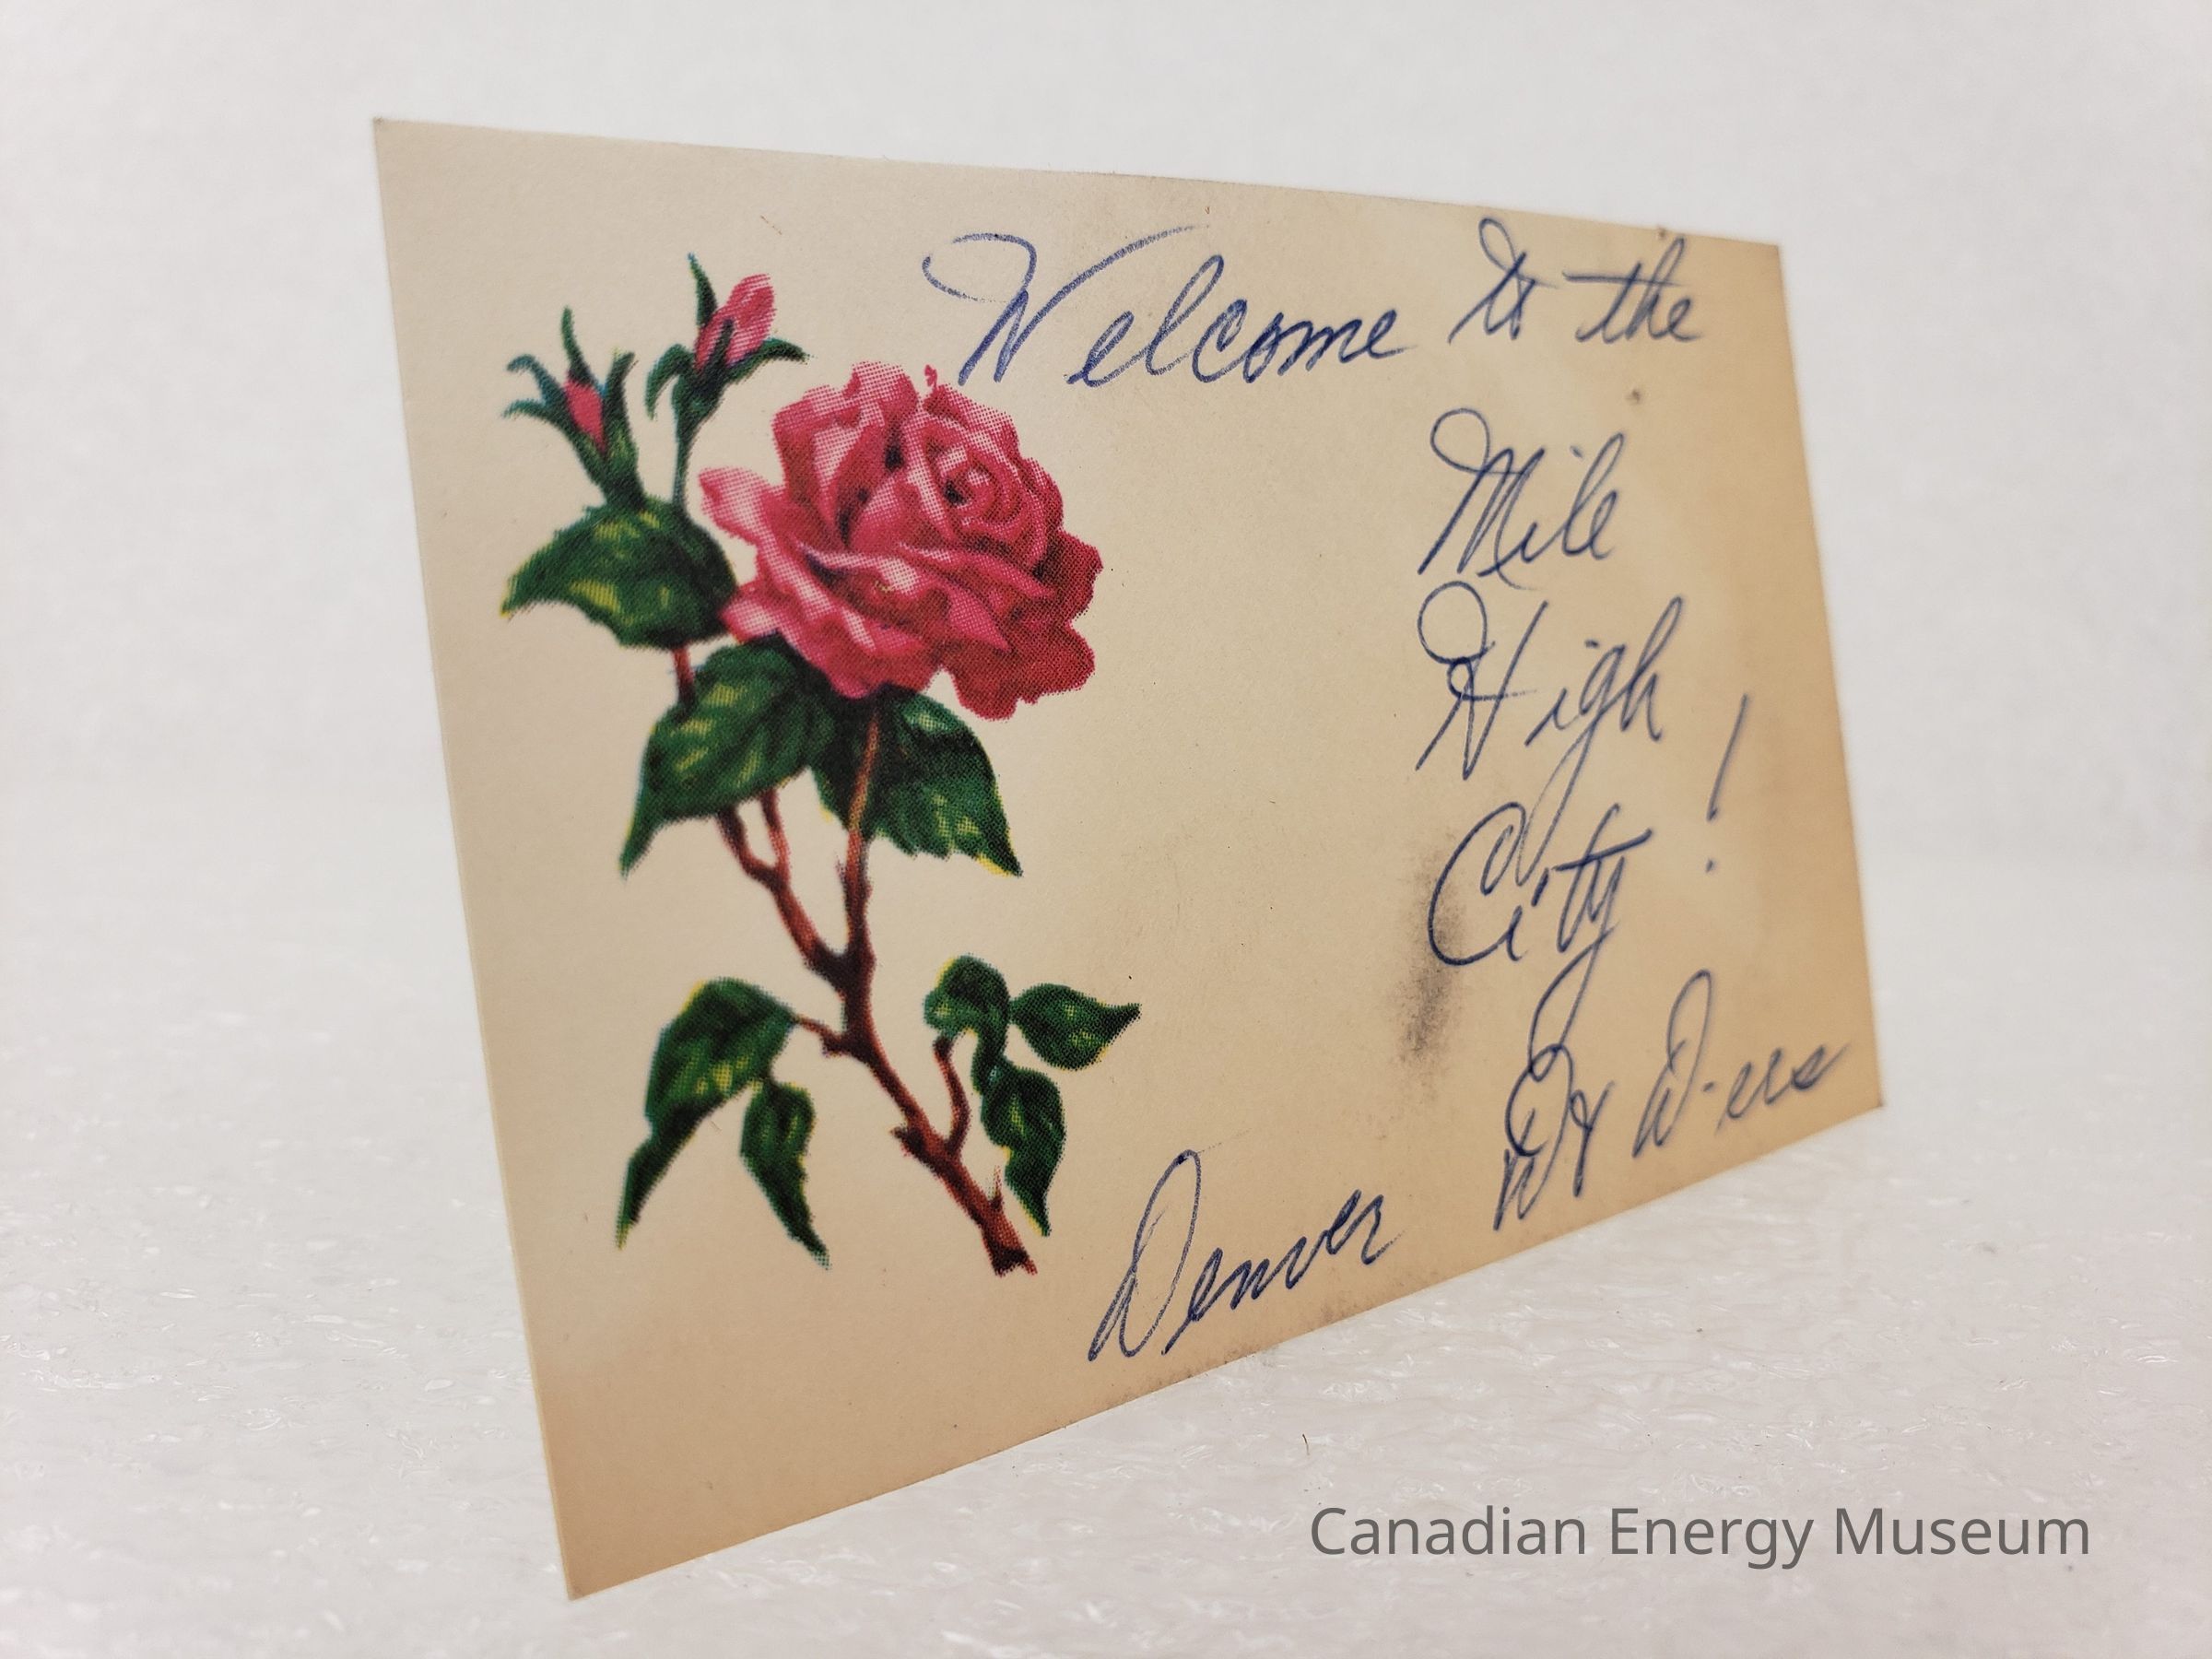 Welcome to the
Mile
High
City!
Denver Dx D-ers
Canadian Energy Museum